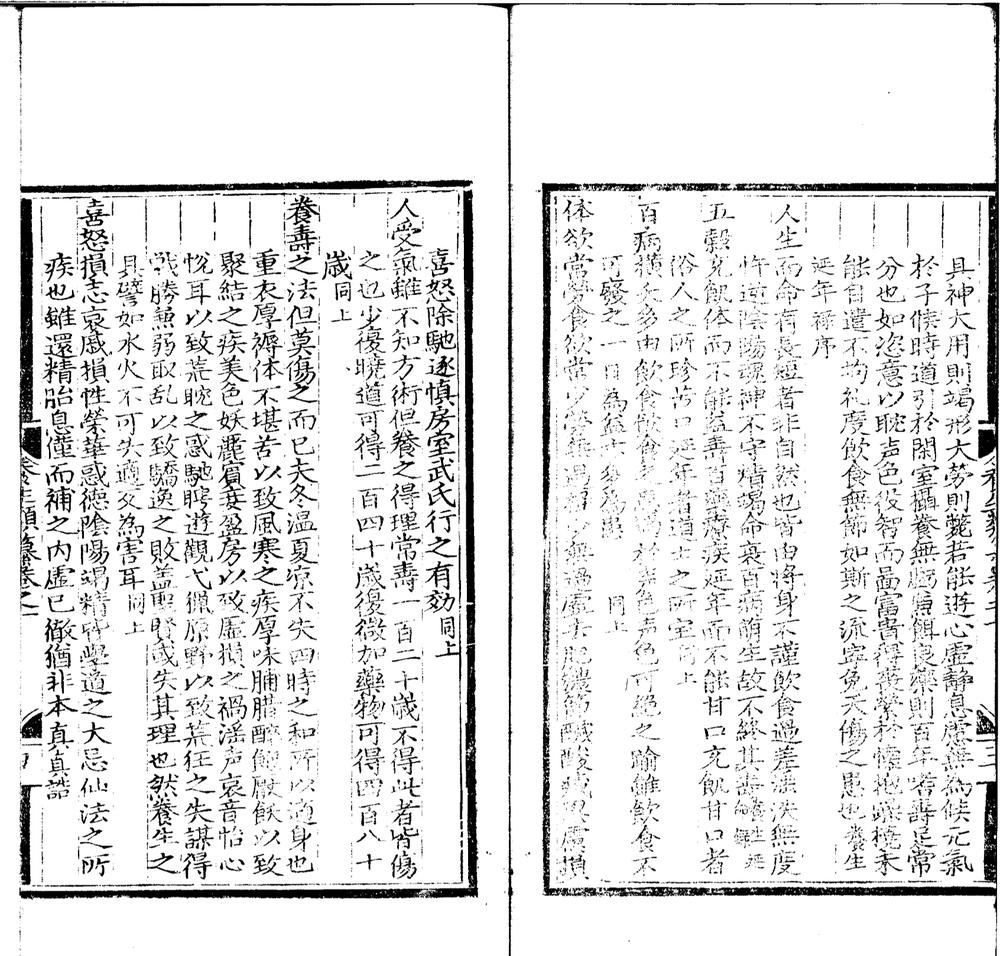 具神大用則竭形大勞則斃若能遊心虛靜息慮無為候元氣
於子候時道引於閑室攝養無虧兼餌良藥則百年耆壽是常
分也如恣意以耽声色役智而啚富貴得喪縈於懷抱躁撓未
能自遣不拘礼度飲食無節如斯之流寧免夭傷之患也養生
延年禄序
人生而命有長短者非自然也皆由將身不謹飲食過差淫泆無度
忤逆陰陽魂神不守精竭命衰百病萌生故不終其壽養性延
五穀充飢体而不能益壽百藥療疾延年而不能甘口充飢甘口者
俗人之所珍苦口延年者道士之所宝同上
百病橫夭多由飲食飲食之患過於声色声色可絕之踰年飲食不
可廢之一日為益亦多為患 同上
体欲常勞食欲常少勞無過極少無過虛去肥濃節鹹酸減思慮損
喜怒除馳逐慎房室武氏行之有効同上
人受氣雖不知方術但養之得理常壽一百二十歲不得此者皆傷
之也少復曉道可得二百四十歲復微加藥物可得四百八十
歲同上
養壽之法但莫傷之而已夫冬溫夏凉不失四時之和所以適身也
重衣厚褥体不堪苦以致風寒之疾厚味脯腊醉飽厭飫以致
聚結之疾美色妖麗嬪妾盈房以致虛損之禍淫声哀音怡心
悅耳以致荒耽之惑馳騁遊觀弋獵原野以致荒狂之失謀得
戰勝兼弱取乱以致驕逸之敗盖聖賢或失其理也然養生之
具譬如水火不可失適反為害耳同上
喜怒損志哀慼損性榮華惑德陰陽竭精皆學道之大忌仙法之所
疾也雖還精胎息僅而補之內虛已徹猶非本真真誥
養生類纂卷之一
四